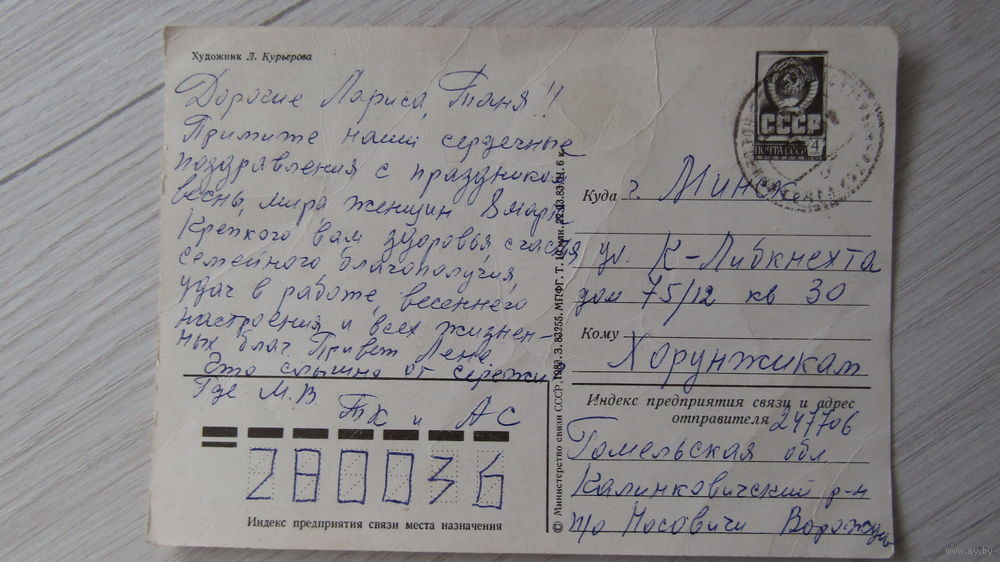 Художник Л. Курьерова
Дорогие Лариса, Таня!!
Примите наши сердечные
поздравления с праздником
весны, мира женщин 8 марта
Крепкого вам здоровья, счастья
семейного благополучия,
удач в работе, весеннего
настроения и всех жизнен-
ных благ. Привет Лене.
Это слышно от Сережи
Где М.В
ТК и АС
280036
Индекс предприятия связи места назначения
© Министерство связи СССР, 1983. З. 83255. МПФГ. Т. 10 млн. 22.03.83. Ц. 6 к.
СССР
ПОЧТА СССР 4
Куда г. Минск
ул. К-Либкнехта
дом 75/12 кв 30
Кому
Хорунжикам
Индекс предприятия связи и адрес
отправителя 247706
Гомельская обл
Калинковичский р-н
п/о Носовичи
www.ay.by